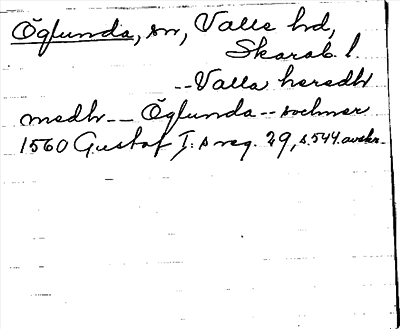 Öglunda, sn, Valle hd,
Skarab. l.
-- Valla heredh
medh -- Öglunda -- sochner
1560 Gustaf I:s reg. 29, s. 544. avskr.